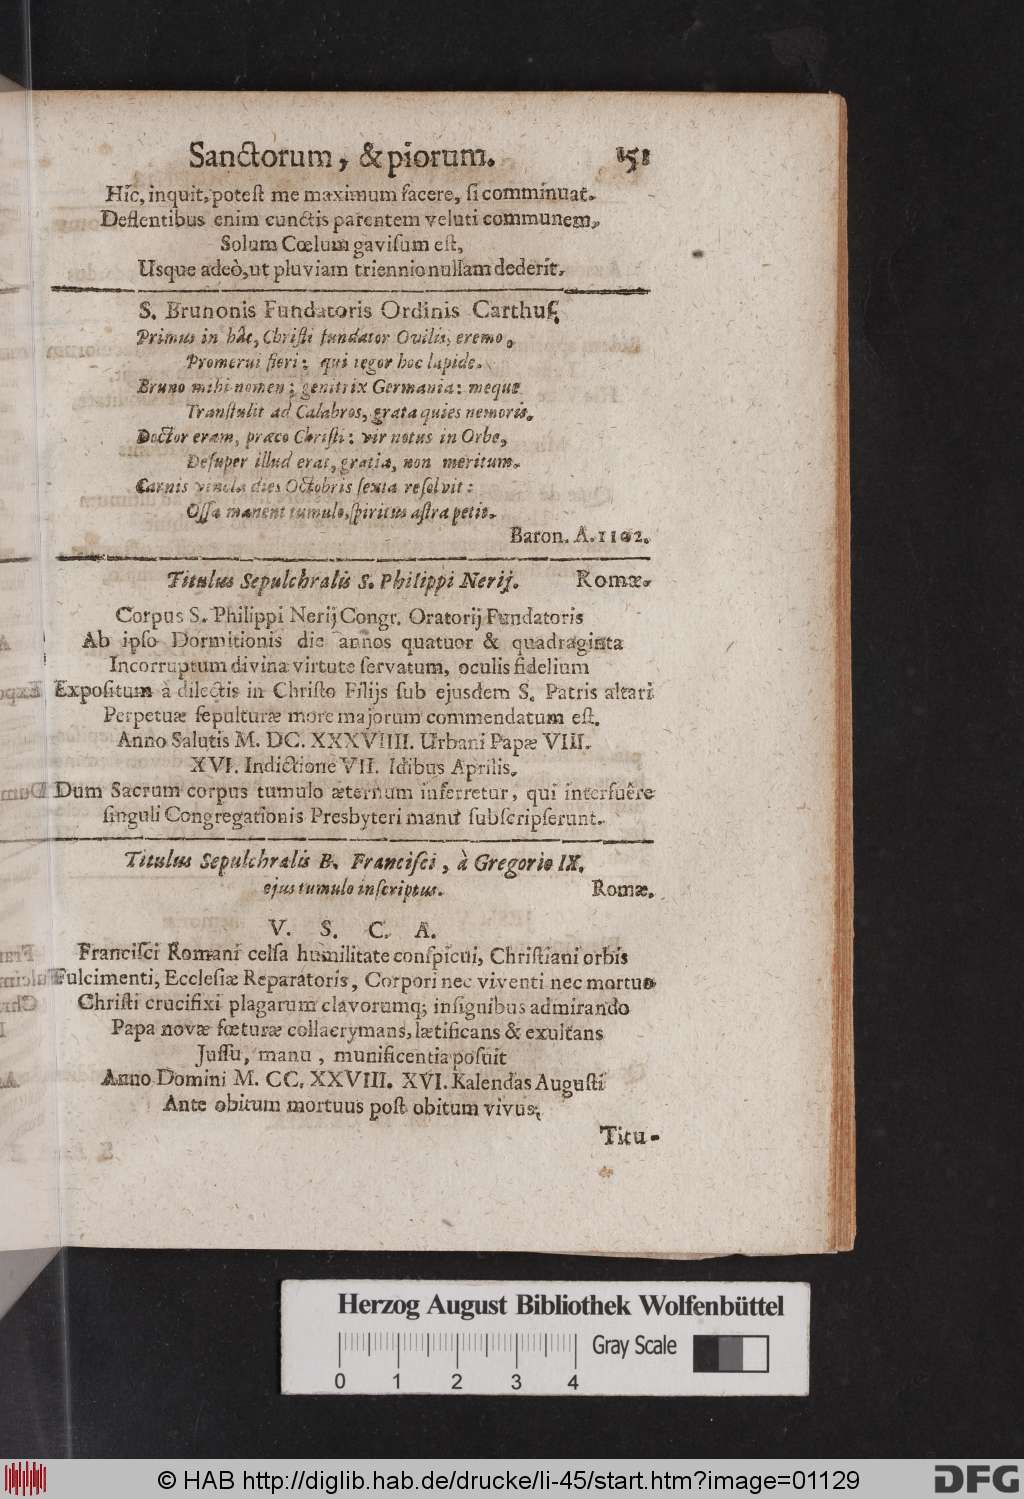 Sanctorum, & piorum. 151
Hîc, inquit, poteſt me maximum facere, ſi comminuat.
Deflentibus enim cunctis parentem veluti communem,
Solum Cœlum gaviſum eſt,
Usque adeò, ut pluviam triennio nullam dederit.
S. Brunonis Fundatoris Ordinis Carthuſ.
Primus in hâc, Chriſti fundator Ovilis, eremo,
Promerui fieri: qui tegor hoc lapide.
Bruno mihi nomen: genitrix Germania: meque
Tranſtulit ad Calabros, grata quies nemoris.
Doctor eram, præco Chriſti: vir notus in Orbe,
Deſuper illud erat, gratia, non meritum.
Carnis vincla dies Octobris ſexta reſolvit:
Oſſa manent tumulo, ſpiritus aſtra petit.
Baron. A. 1102.
Titulus Sepulchralis S. Philippi Nerij. Romæ.
Corpus S. Philippi Nerij Congr. Oratorij Fundatoris
Ab ipſo Dormitionis die annos quatuor & quadraginta
Incorruptum divina virtute ſervatum, oculis fidelium
Expoſitum à dilectis in Chriſto Filijs ſub ejusdem S. Patris altari
Perpetuæ ſepulturæ more majorum commendatum eſt.
Anno Salutis M. DC. XXXVIIII. Urbani Papæ VIII.
XVI. Indictione VII. Idibus Aprilis.
Dum Sacrum corpus tumulo æternum inferretur, qui interfuêre
ſinguli Congregationis Presbyteri manu ſubſcripſerunt.
Titulus Sepulchralis B. Franciſci, à Gregorio IX.
ejus tumulo inſcriptus. Romæ.
V. S. C. A.
Franciſci Romani celſa humilitate conſpicui, Chriſtiani orbis
Fulcimenti, Eccleſiæ Reparatoris, Corpori nec viventi nec mortuo
Chriſti crucifixi plagarum clavorumq; inſignibus admirando
Papa novæ fœturæ collacrymans, lætificans & exultans
Juſſu, manu, munificentia poſuit
Anno Domini M. CC. XXVIII. XVI. Kalendas Auguſti
Ante obitum mortuus poſt obitum vivus.
Titu-
Herzog August Bibliothek Wolfenbüttel
Gray Scale
0 1 2 3 4
© HAB http://diglib.hab.de/drucke/li-45/start.htm?image=01129
DFG